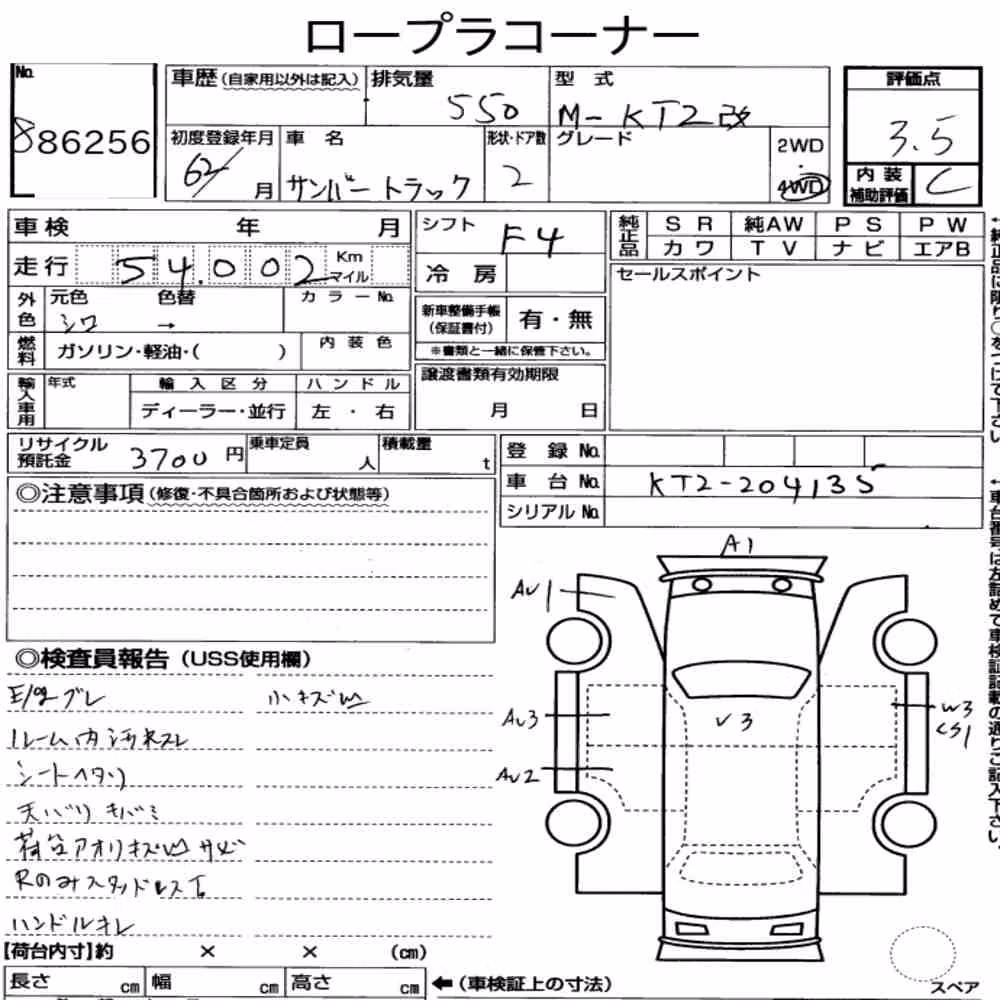 ロープラコーナー
No.
886256
車歴(自家用以外は記入) 排気量 型式
550 M-KT2改
初度登録年月 車名 形状・ドア数 グレード 2WD
62/ 月 サンバートラック 2 4WD
評価点
3.5
内装
補助評価 C
車検 年 月
走行 54.002 Km
マイル
外色 元色 色替 カラーNo.
シロ →
燃料 ガソリン・軽油・( ) 内装色
輸入車用 年式 輸入区分 ハンドル
ディーラー・並行 左・右
シフト F4
冷房
新車整備手帳
(保証書付) 有・無
※書類と一緒に保管下さい。
譲渡書類有効期限
月 日
純正品 SR 純AW PS PW
カワ TV ナビ エアB
セールスポイント
リサイクル
預託金 3700円 乗車定員 人 積載量 t
登録No.
車台No. KT2-204135
シリアルNo.
◎注意事項(修復・不具合箇所および状態等)
◎検査員報告(USS使用欄)
E/gブレ 小キズ凹
ルーム内汚れスレ
シートヘタリ
天バリキバミ
荷台アオリキズ凹サビ
Rのみスタッドレス
ハンドルキレ
A1
AU1
AU3
AU2
U3
W3
CS1
スペア
【荷台内寸】約 × × (cm)
長さ cm 幅 cm 高さ cm ←(車検証上の寸法)
←純正品に限り○をつけて下さい
←車台番号は左詰めで車検証記載の通りご記入下さい。